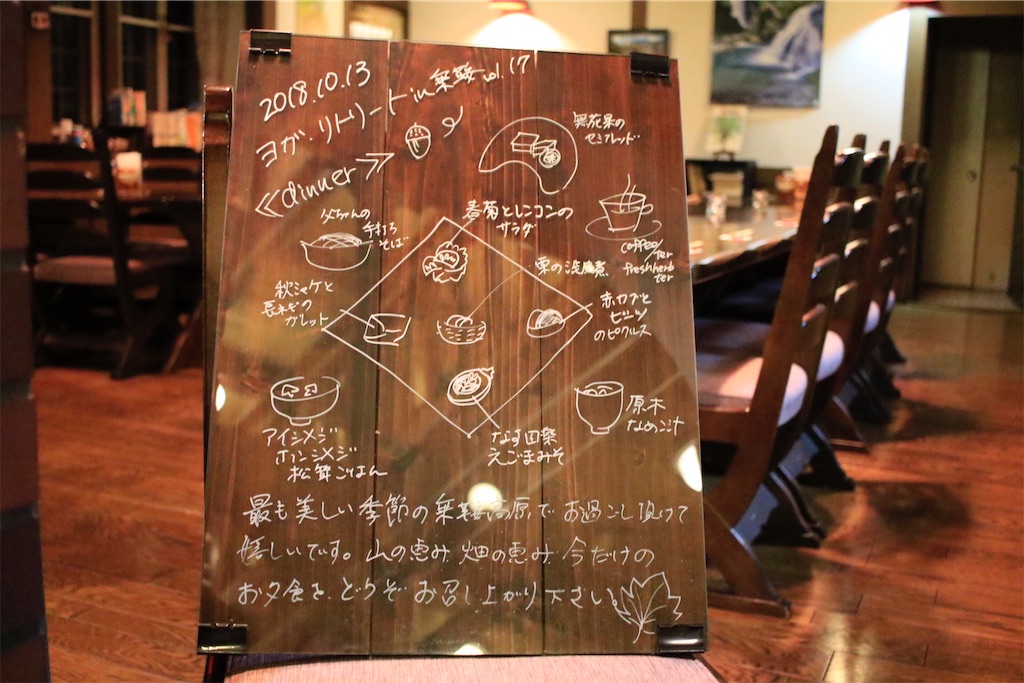 2018.10.13
ヨガ・リトリート in 乗鞍 vol.17
≪dinner≫
無花果の
セミフレッド
父ちゃんの
手打ち
そば
春菊とレンコンの
サラダ
coffee/
ter
freshherb
ter
栗の渋皮煮
秋シャケと
長ネギの
ガレット
赤カブと
ビーツ
のピクルス
アイシメジ
ホンシメジ
松茸ごはん
なす田楽
えごまみそ
原木
なめこ汁
最も美しい季節の乗鞍高原でお過ごし頂けて
嬉しいです。山の恵み 畑の恵み 今だけの
お夕食を、どうぞお召し上がり下さい。